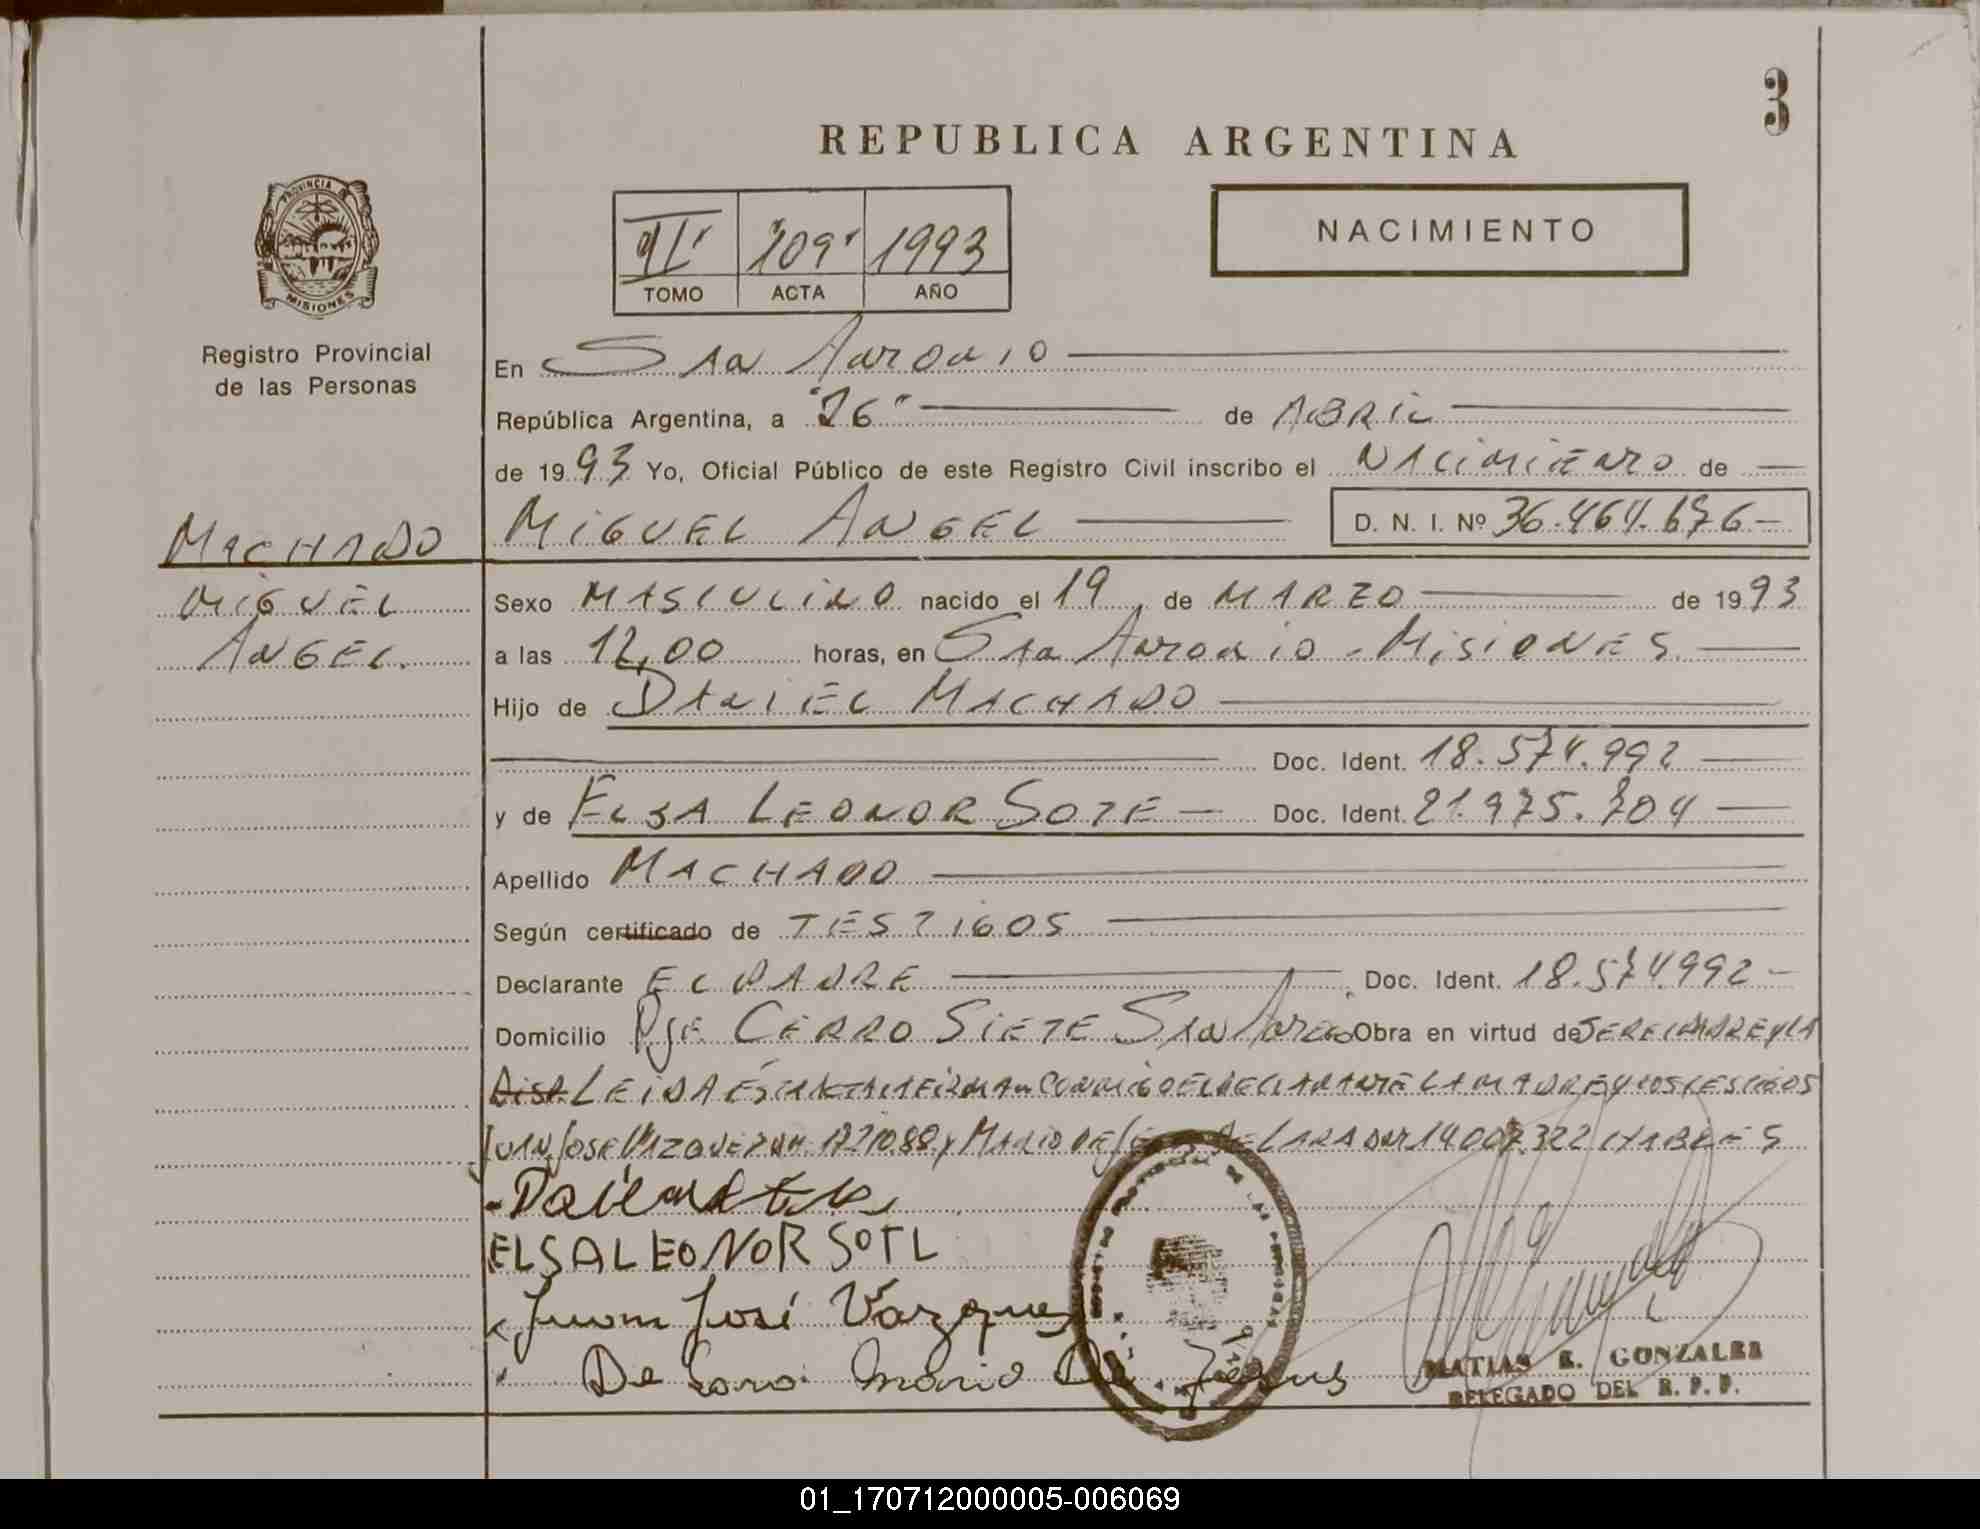 3
REPUBLICA ARGENTINA
PROVINCIA DE
MISIONES
Registro Provincial
de las Personas
II "109" 1993
TOMO ACTA AÑO
NACIMIENTO
En San Antonio
República Argentina, a "26" de ABRIL
de 1993 Yo, Oficial Público de este Registro Civil inscribo el NACIMIENTO de
MACHADO
MIGUEL ANGEL
MIGUEL ANGEL D. N. I. Nº 36.464.676-
Sexo MASCULINO nacido el 19 de MARZO de 1993
a las 12,00 horas, en San Antonio - MISIONES
Hijo de DANIEL MACHADO
Doc. Ident. 18.574.992
y de ELSA LEONOR SOTE Doc. Ident. 21.975.704
Apellido MACHADO
Según certificado de TESTIGOS
Declarante EL PADRE Doc. Ident. 18.574.992-
Domicilio Pje CERRO SIETE San Antonio Obra en virtud de SER EL PADRE Y LA
Disp. LEIDA ESTA ACTA LA FIRMAN CONMIGO EL DECLARANTE LA MADRE Y LOS TESTIGOS
JUAN JOSE VAZQUEZ y MARIO DE JESUS DE LARA DNI 14.007.322 HABLES
ELSA LEONOR SOTL
Juan José Vazquez
De Lara Mario De Jesus
MATIAS R. GONZALEZ
DELEGADO DEL R. P. P.
01_170712000005-006069